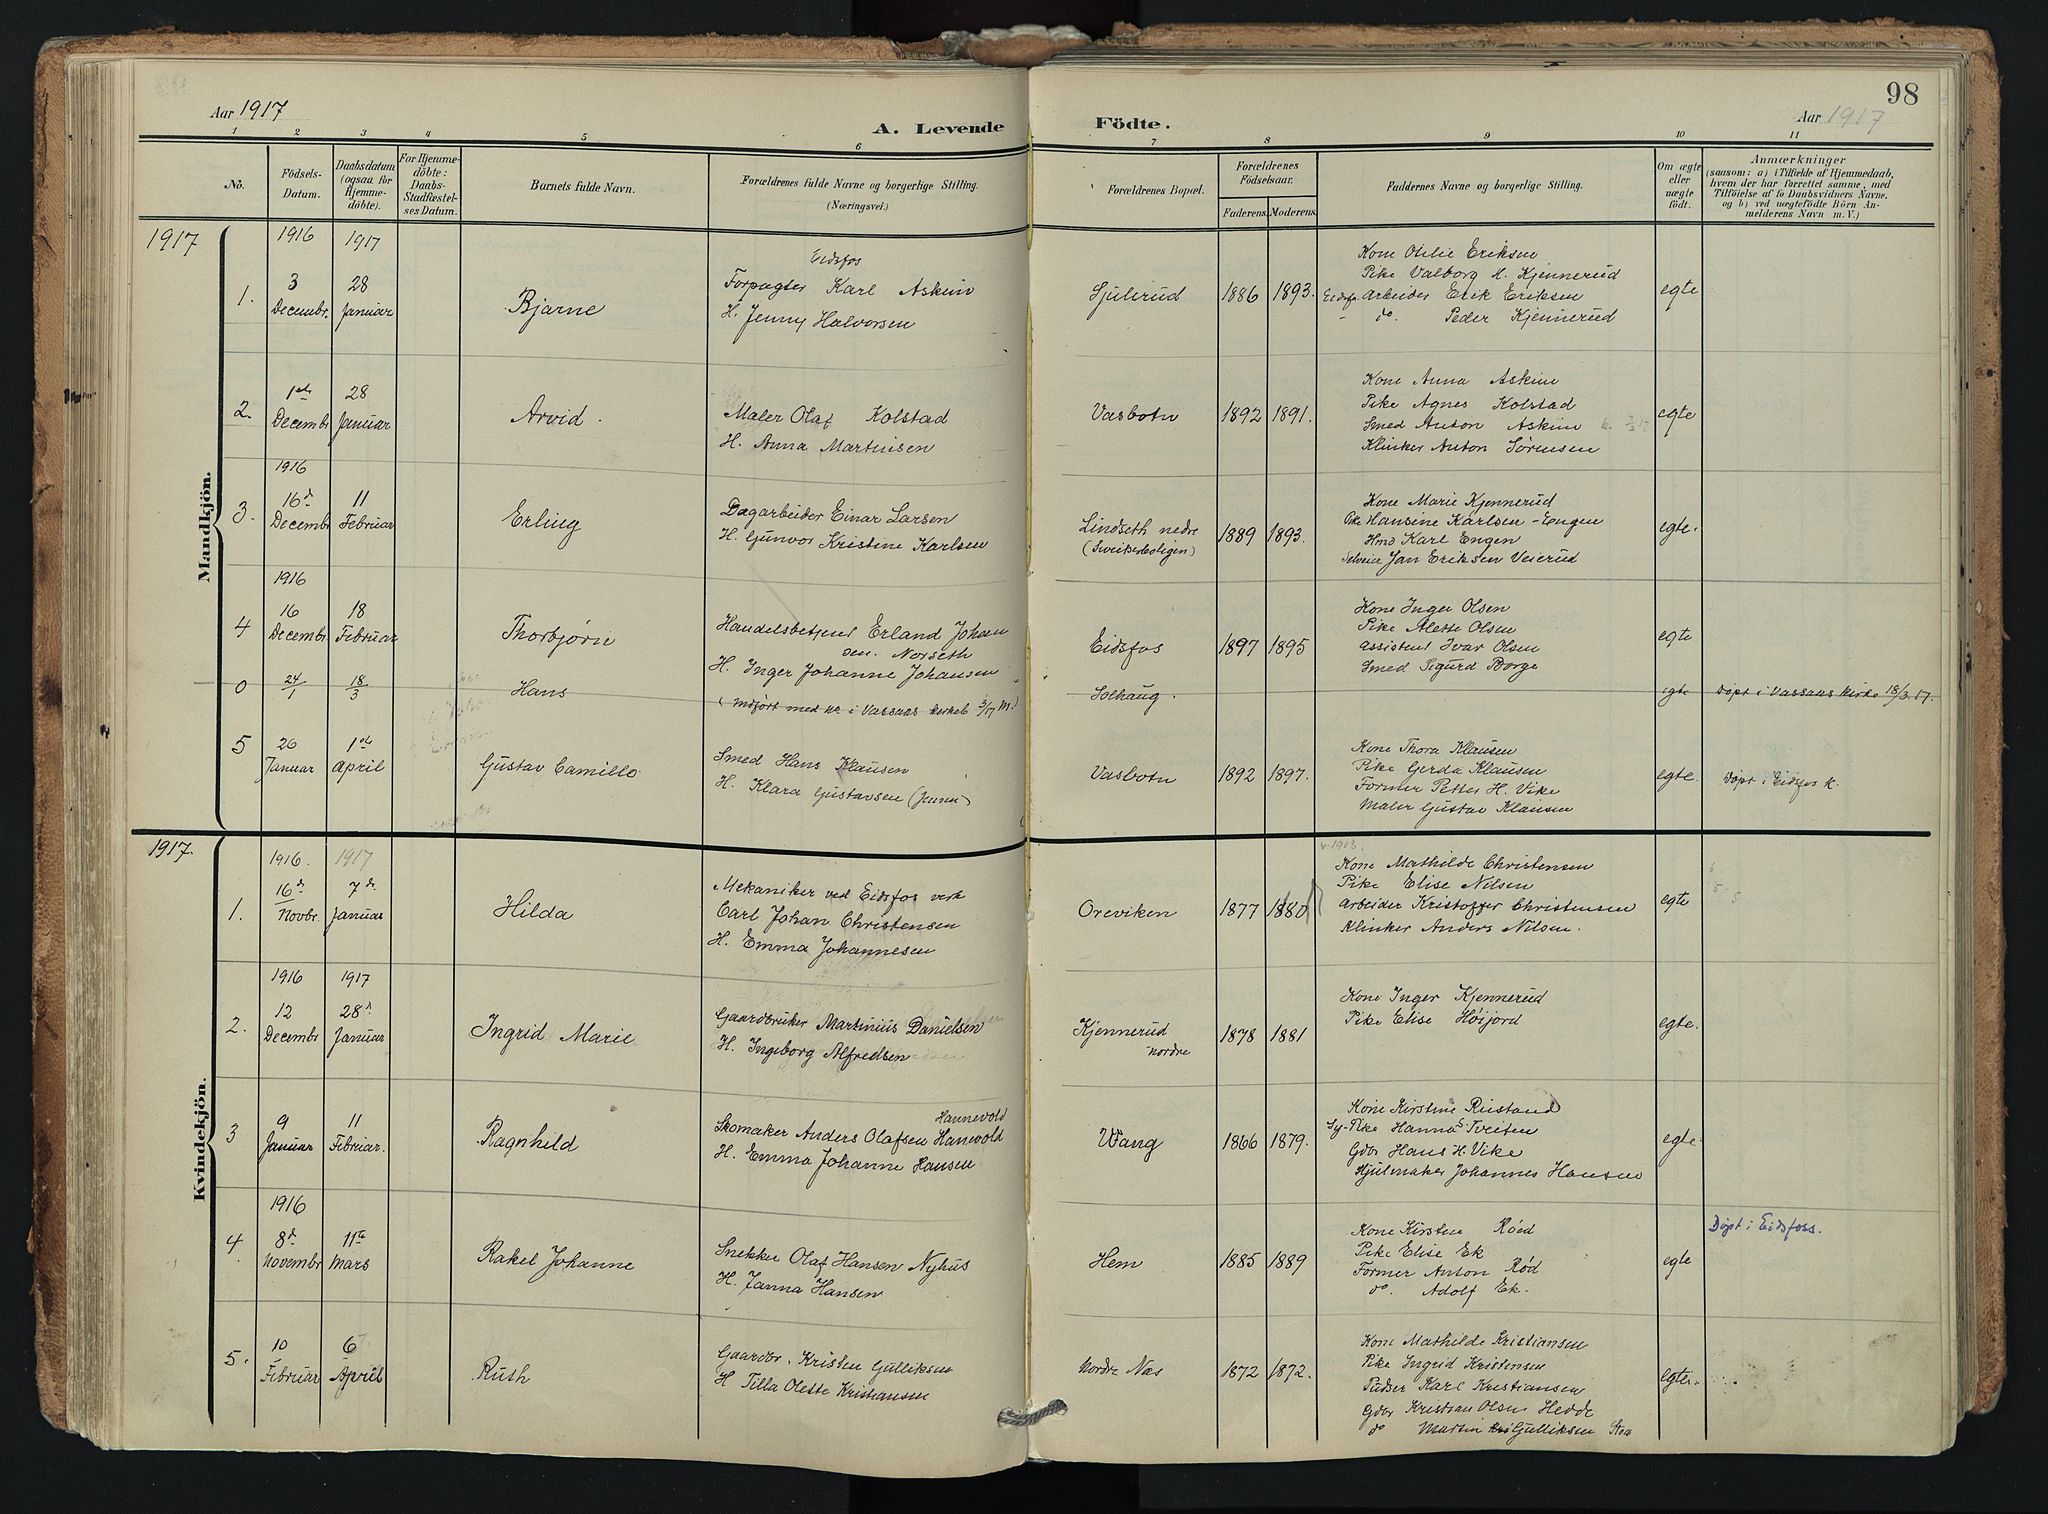 98
Aar 1917
A. Levende Födte.
Aar 1917
1 2 3 4 5 6 7 8 9 10 11
No.
Födsels-Datum.
Daabsdatum (ogsaa for Hjemme-döbte).
For Hjemme-döbte: Daabs-Stadfæstel-ses Datum.
Barnets fulde Navn.
Forældrenes fulde Navne og borgerlige Stilling. (Næringsvei.)
Forældrenes Bopæl.
Forældrenes Födselsaar.
Faderens. Moderens.
Faddernes Navne og borgerlige Stilling.
Om ægte eller uægte födt.
Anmærkninger
(saasom: a) i Tilfælde af Hjemmedaab,
hvem der har forrettet samme, med
Tilföielse af to Daabsvidners Navne,
og b) ved uægtefödte Börn An-
melderens Navn m. V.)
1917
Mandkjön.
1916 1917
1. 3 Decembr. 28 Januar
Bjarne
Eidsfos
Forpagter Karl Askim
H. Jenny Halvorsen
Sjulerud 1886 1893.
Kone Otilie Eriksen
Pike Valborg M. Kjennerud
Eidsfos Arbeider Erik Eriksen
- do. Peder Kjennerud
egte
2. 1ste Decembr 28 Januar
Arvid.
Maler Olaf Kolstad
H. Anna Martinsen
Vasbotn 1892 1891.
Kone Anna Askim
Pike Agnes Kolstad
Smed Anton Askim
Klinker Anton Sørensen
egte
1916
3. 16d Decembr 11 Februar
Erling
Dagarbeider Einar Larsen
H. Gunvor Kristine Karlsen
Lindseth nedre
1889 1893.
Kone Marie Kjennerud
Pike Hansine Karlsen - Engen
Hmd Karl Engen
Selveier Jan Eriksen Veierud
egte.
1916
4 16 Decembr 18 Februar
Thorbjørn
Handelsbetjent Erland Johan
sen. Norseth
H. Inger Johanne Johansen
Eidsfos 1897 1895
Kone Inger Olsen
Pike Alette Olsen
Assistent Ivar Olsen
Smed Sigurd Borge
egte
0 24/1 18/3
Hans
(Indført med nr i Vassaas kirkeb 3/17 M.)
Solhaug.
egte
Døpt i Vassaas kirke 18/3.17.
5 26 Januar 1ste April
Gustav Camillo
Smed Hans Klausen
H. Klara Gustavsen
Vasbotn 1892 1897.
Kone Thora Klausen
Pike Gerda Klausen
Former Petter H. Vike
Maler Gustav Klausen
egte.
Døpt i Eidsfos k.
1917.
Kvindekjön.
1916. 1917
1. 16d Novbr. 7de Januar
Hilda
Mekaniker ved Eidsfos verk
Carl Johan Christensen
H. Emma Johannesen
Oreviken 1877 1880
v. 1903.
Kone Mathilde Christensen
Pike Elise Nilsen
Arbeider Kristoffer Christensen
Klinker Anders Nilsen.
egte
1916 1917
2. 12 Decembr 28d Januar
Ingrid Marie
Gaardbruker Martinius Danielsen
H. Ingeborg Alfredsen
Kjennerud
nordre
1878 1881
Kone Inger Kjennerud
Pike Elise Høijord
egte.
3 9 Januar 11 Februar.
Ragnhild
Hannevold
Skomaker Anders Olafsen Hanevold
H. Emma Johanne Hansen
Wang 1866 1879.
Kone Kirstine Rustand
Sy-Pike Hanna S Tveiten
Gdbr Hans H. Vike
Hjulmaker Johannes Hansen
egte.
1916
4. 8d Novembr 11te Mars
Rakel Johanne
Snekker Olaf Hansen Nyhus
H. Janna Hansen
Hem 1885 1889
Kone Kirsten Røed
Pike Elise Ek
Former Anton Rød
do. Adolf Ek.
egte
Døpt i Eidsfoss.
5. 10 Februar 6 April
Ruth
Gaardbr. Kristen Gulliksen
H Tilla Olette Kristiansen
Nordre Næs 1872 1872.
Kone Mathilde Kristiansen
Pike Ingrid Kristensen
Pudser Karl Kristiansen
Gdbr Kristian Olsen Hedde
do Martin Gulliksen
egte.